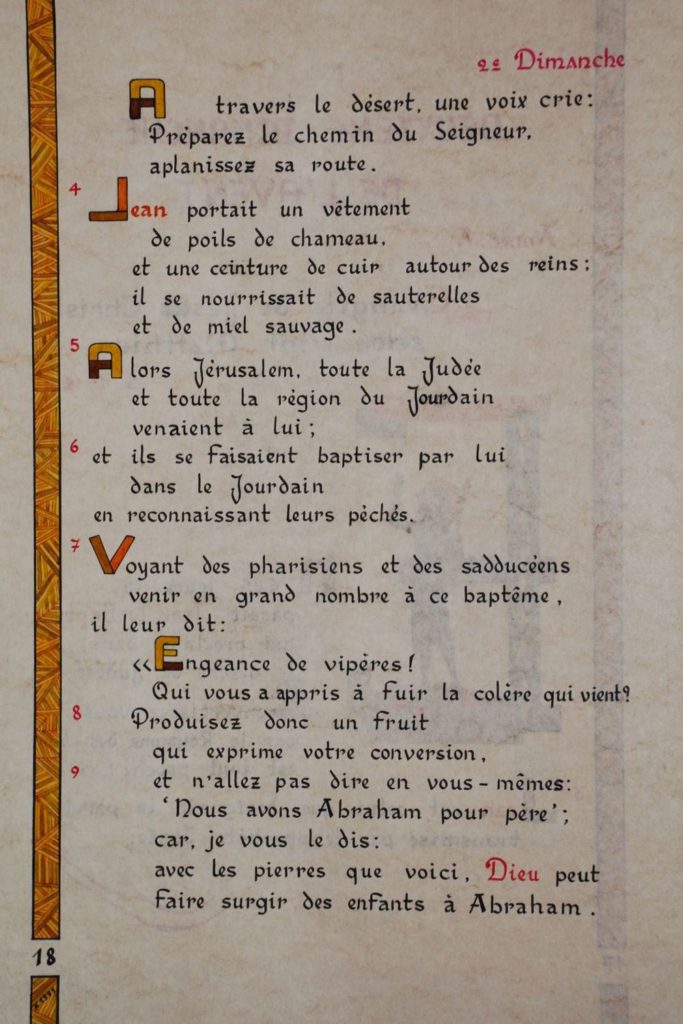 2e Dimanche
A travers le désert, une voix crie:
Préparez le chemin du Seigneur,
aplanissez sa route.
4 Jean portait un vêtement
de poils de chameau,
et une ceinture de cuir autour des reins:
il se nourrissait de sauterelles
et de miel sauvage.
5 Alors Jérusalem, toute la Judée
et toute la région du Jourdain
venaient à lui;
6 et ils se faisaient baptiser par lui
dans le Jourdain
en reconnaissant leurs péchés.
7 Voyant des pharisiens et des sadducéens
venir en grand nombre à ce baptême,
il leur dit:
«Engeance de vipères!
Qui vous a appris à fuir la colère qui vient?
8 Produisez donc un fruit
qui exprime votre conversion,
9 et n'allez pas dire en vous-mêmes:
'Nous avons Abraham pour père';
car, je vous le dis:
avec les pierres que voici, Dieu peut
faire surgir des enfants à Abraham.
18